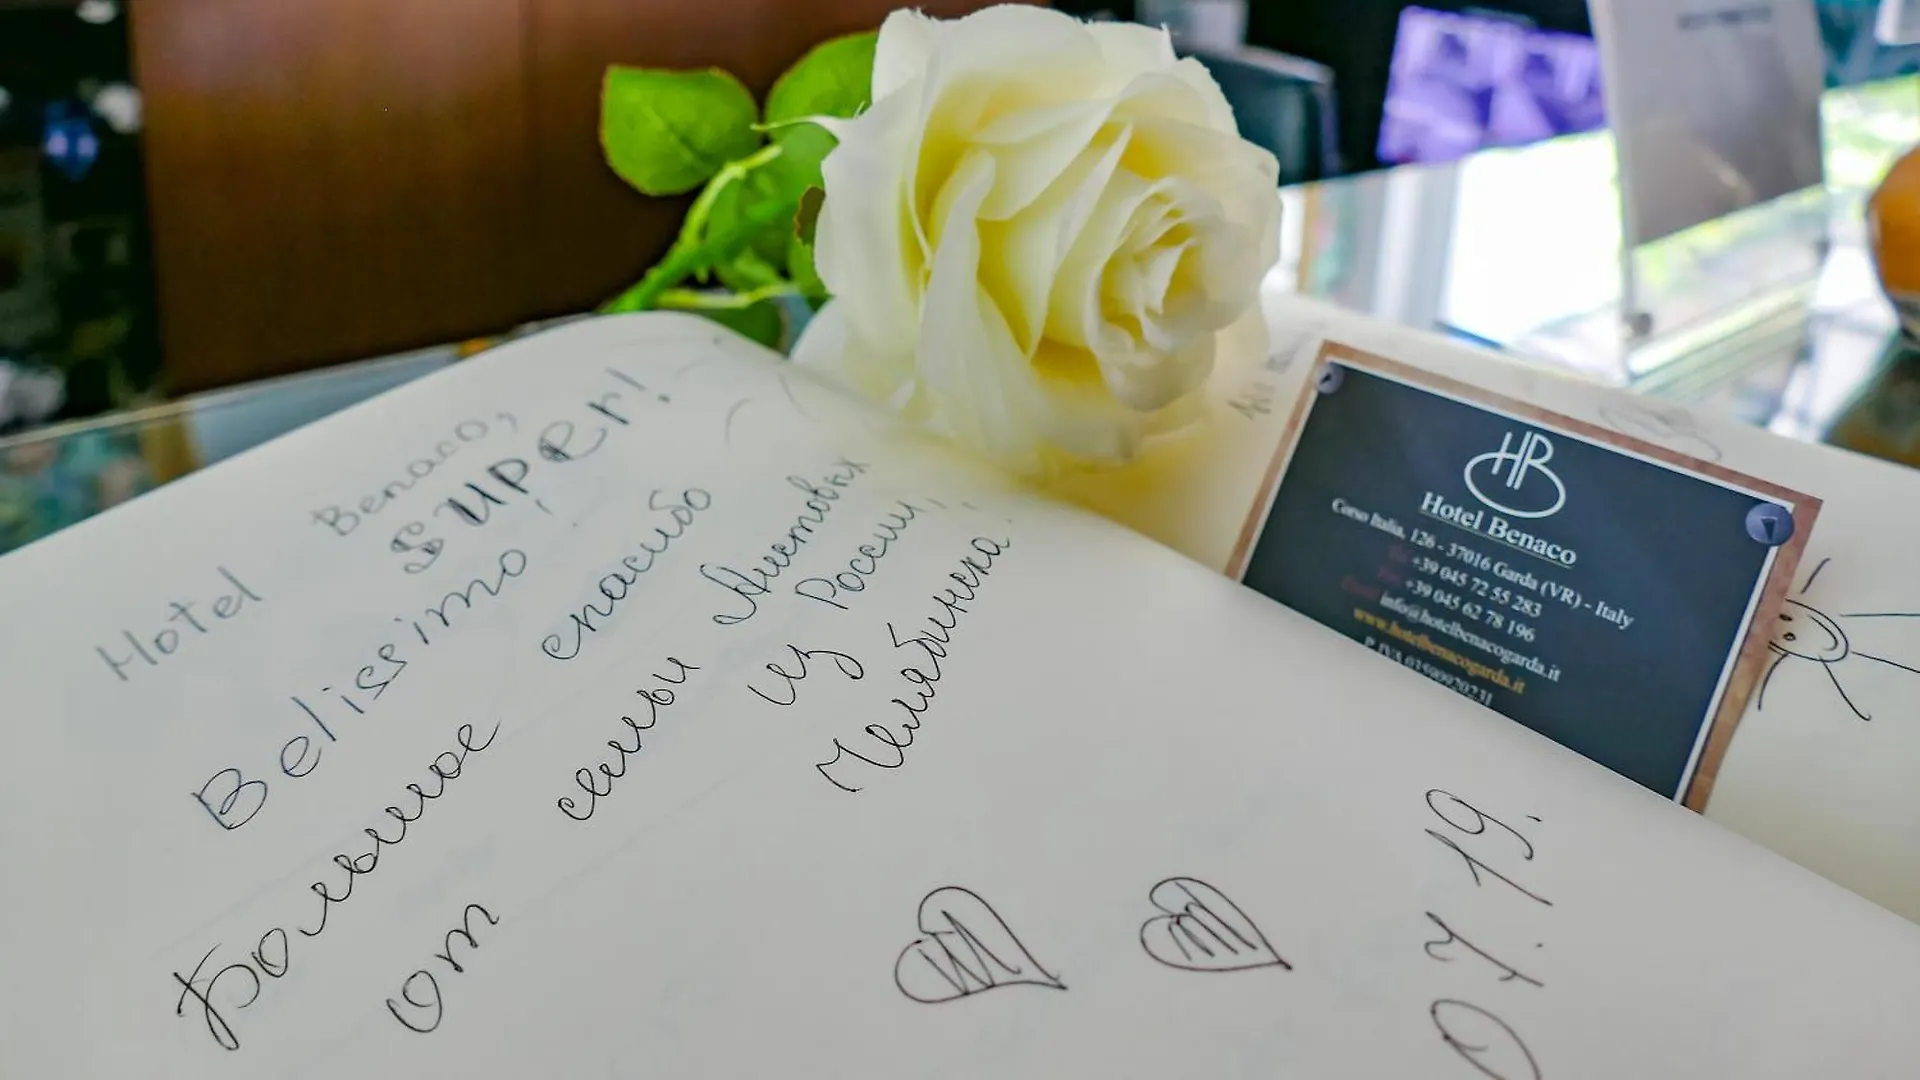 Hotel Benaco,
SUPER!
Belissimo,
Большое спасибо
от семьи Аистовых
из России,
Челябинска.
07.19.
HB
Hotel Benaco
Corso Italia, 126 - 37016 Garda (VR) - Italy
+39 045 72 55 283
+39 045 62 78 196
info@hotelbenacogarda.it
www.hotelbenacogarda.it